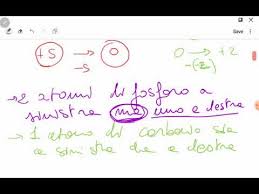 Save More
+5 → 0
0 → +2
-5
-(-2)
→ 2 atomi di fosforo a
sinistra ma uno e destra
→ 1 atomo di carbonio sia
a sinistra che a destra